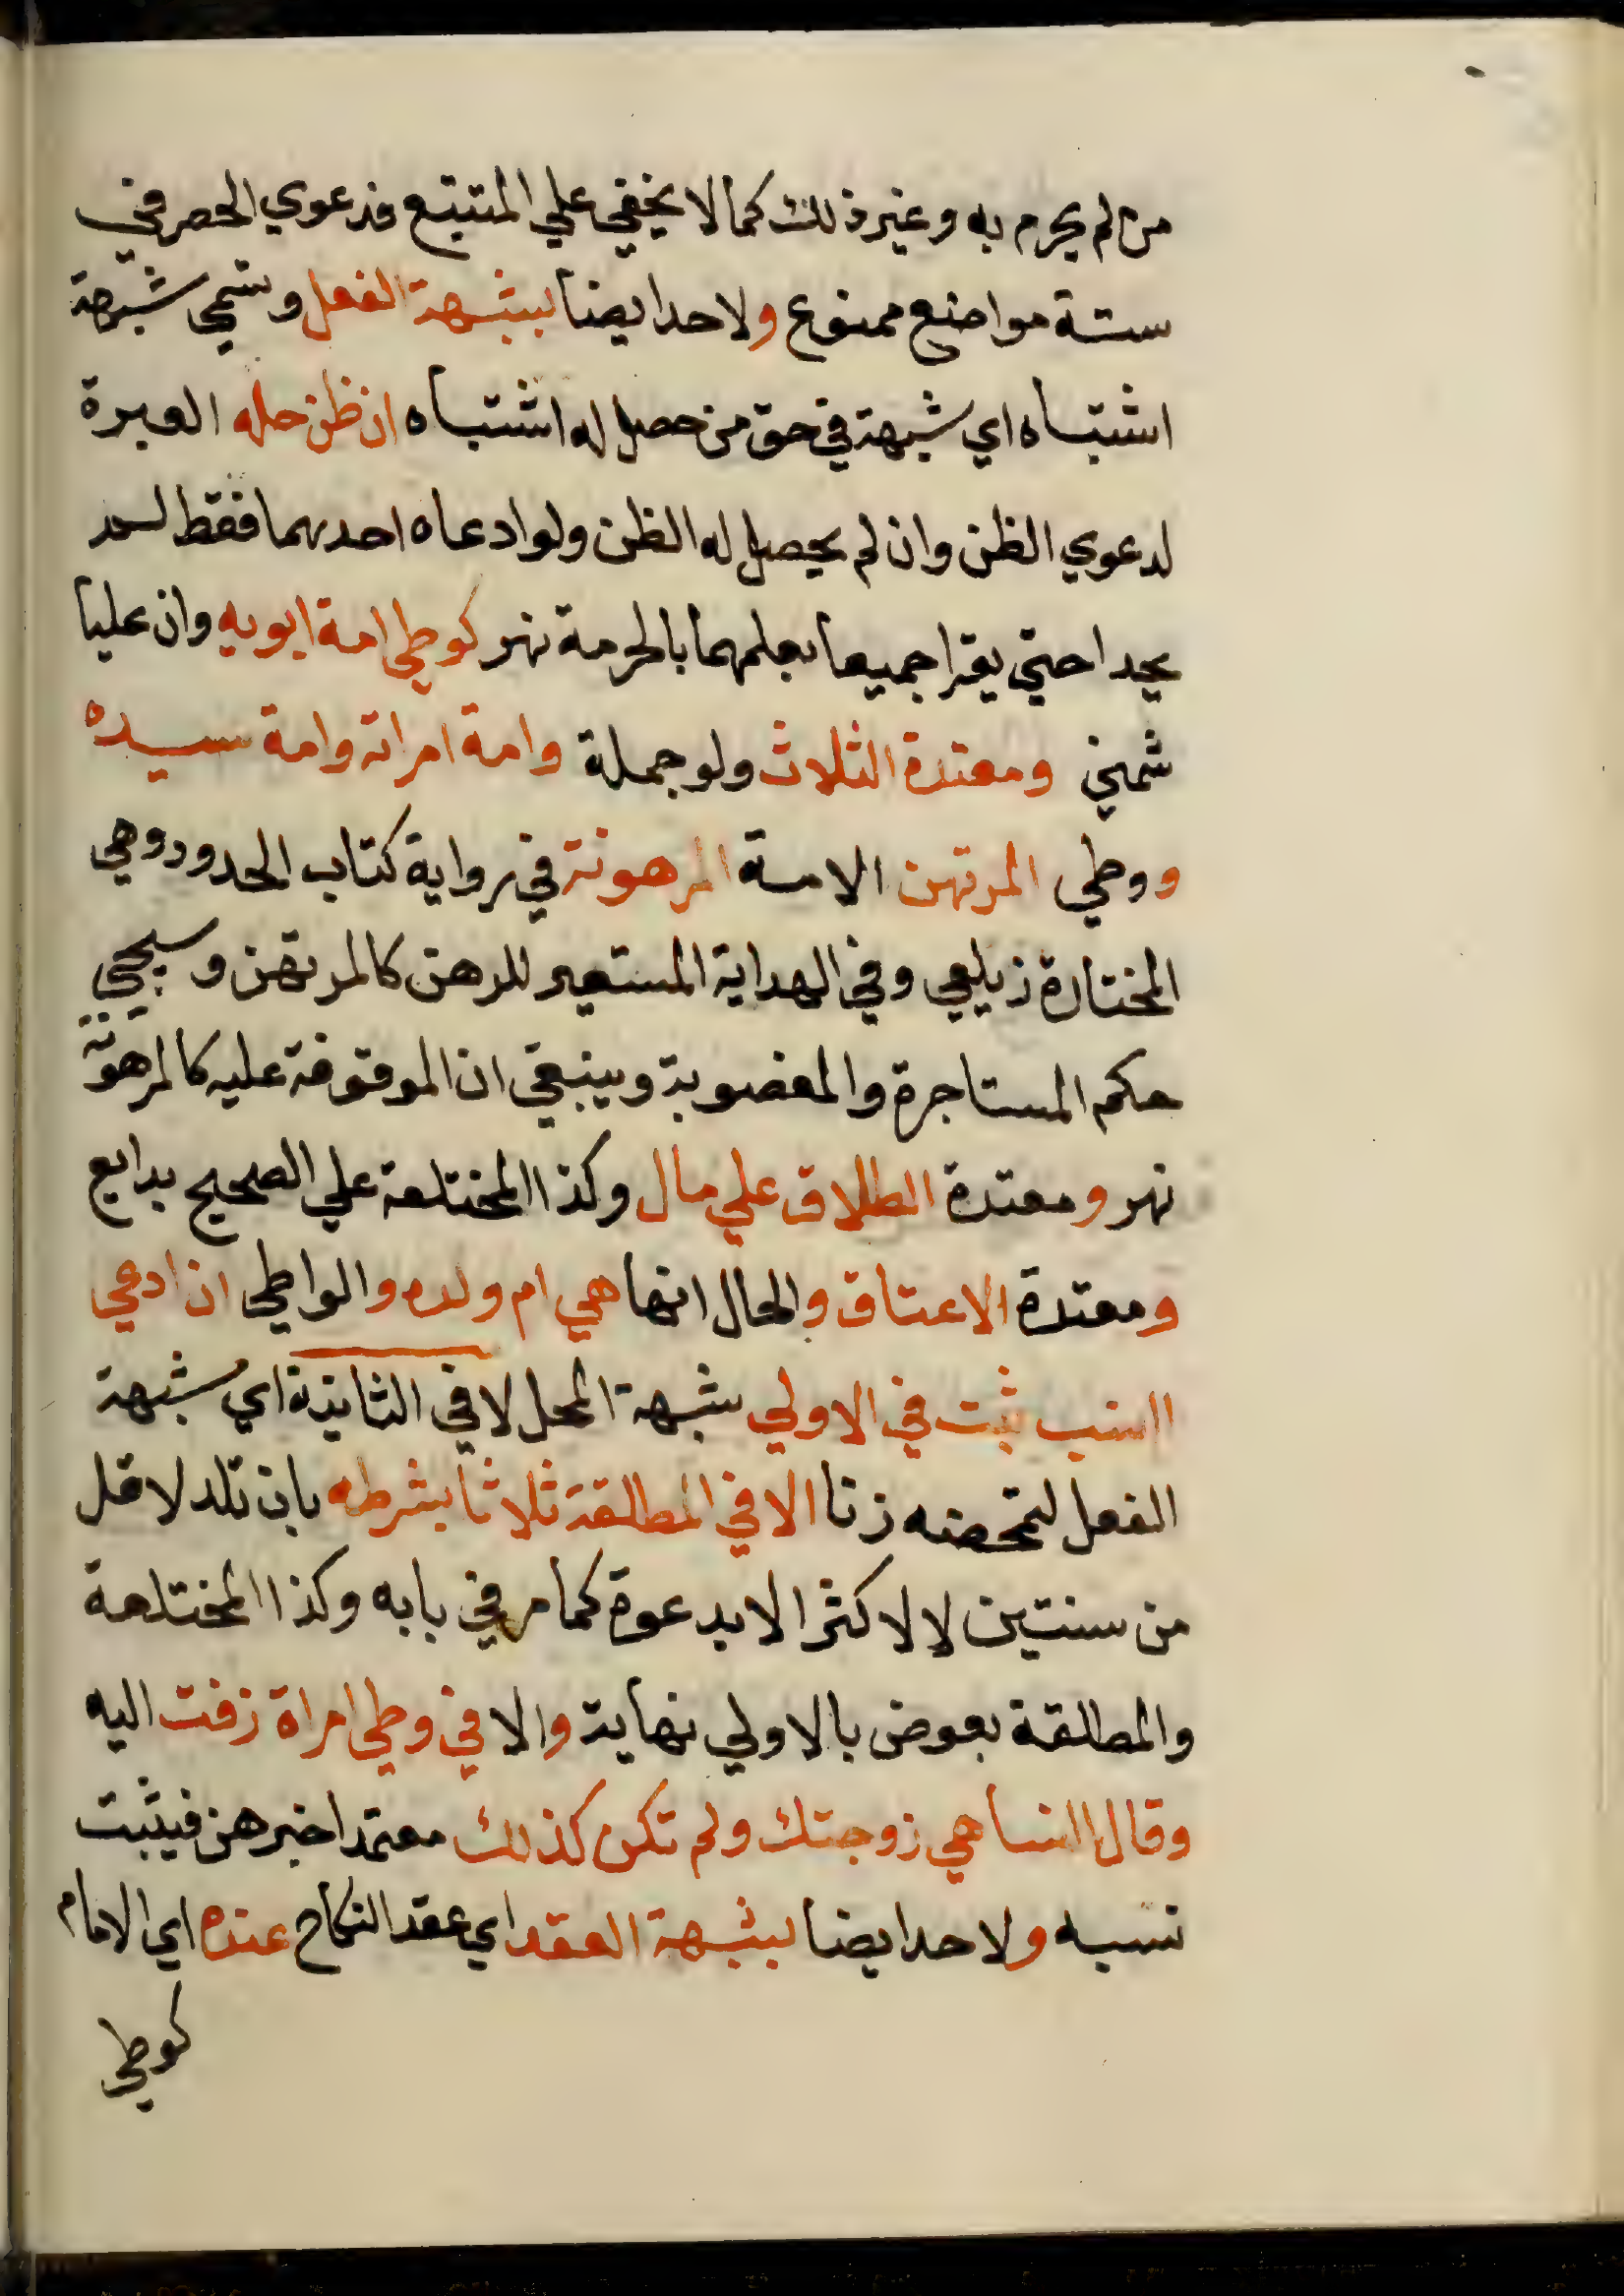 من لم يحرم به وغير ذلك كما لا يخفي علي المتتبع فدعوي الحصر في
ستة مواضع ممنوع ولا حد ايضا بشبهة الفعل وتسمي شبهة
اشتباه اي شبهة في حق من حصل له اشتباه ان ظن حله العبرة
لدعوي الظن وان لم يحصل له الظن ولو ادعاه احدهما فقط لم
يحدا حتي يقرا جميعا بعلمهما بالحرمة نهر كوطي امة ابويه وان عليا
شمني ومعتدة الثلاث ولو جملة وامة امراته وامة سيده
ووطي المرتهن الامة المرهونة في رواية كتاب الحدود وهي
المختارة زيلعي وفي الهداية المستعير للرهن كالمرتهن وسيجي
حكم المستاجرة والمغصوبة وينبغي ان الموقوفة عليه كالمرهونة
نهر ومعتدة الطلاق علي مال وكذا المختلعة علي الصحيح بدايع
ومعتدة الاعتاق والحال انها هي ام ولده والواطي ان ادعي
النسب ثبت في الاولي شبهة المحل لا في الثانية اي شبهة
الفعل لتمحضه زنا الا في المطلقة ثلاثا بشرطه بان تلد لاقل
من سنتين لا لاكثر الا بدعوة كما مر في بابه وكذا المختلعة
والمطلقة بعوض بالاولي نهاية والا في وطي امراة زفت اليه
وقال النسا هي زوجتك ولم تكن كذلك معتمدا خبرهن فيثبت
نسبه ولا حد ايضا بشبهة العقد اي عقد النكاح عنده اي الامام
كوطي